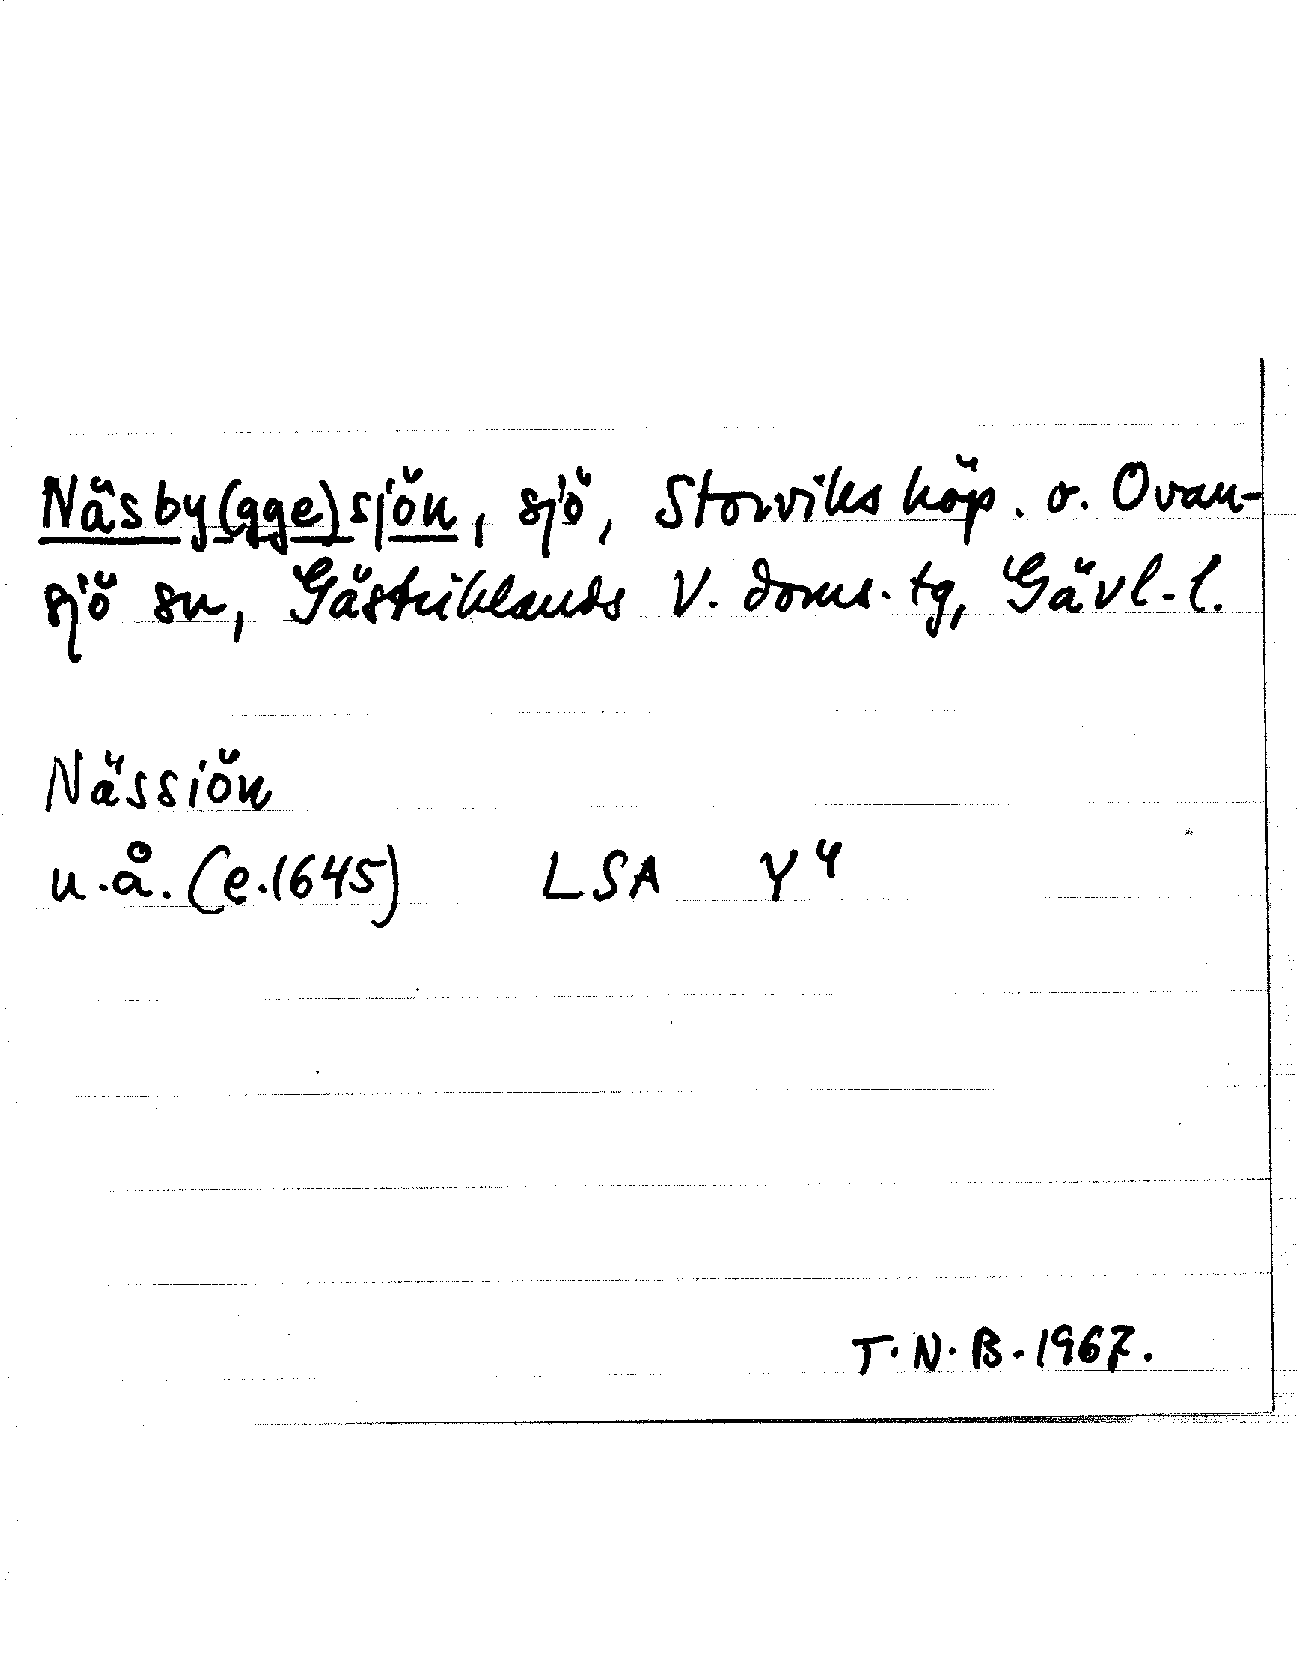 Näsby(gge)sjön, sjö, Storviks köp. o. Ovan-
sjö sn, Gästriklands V. doms. tg, Gävl. l.
Nässiön
u.å. (e.1645) LSA Y4
T.N.B. 1967.